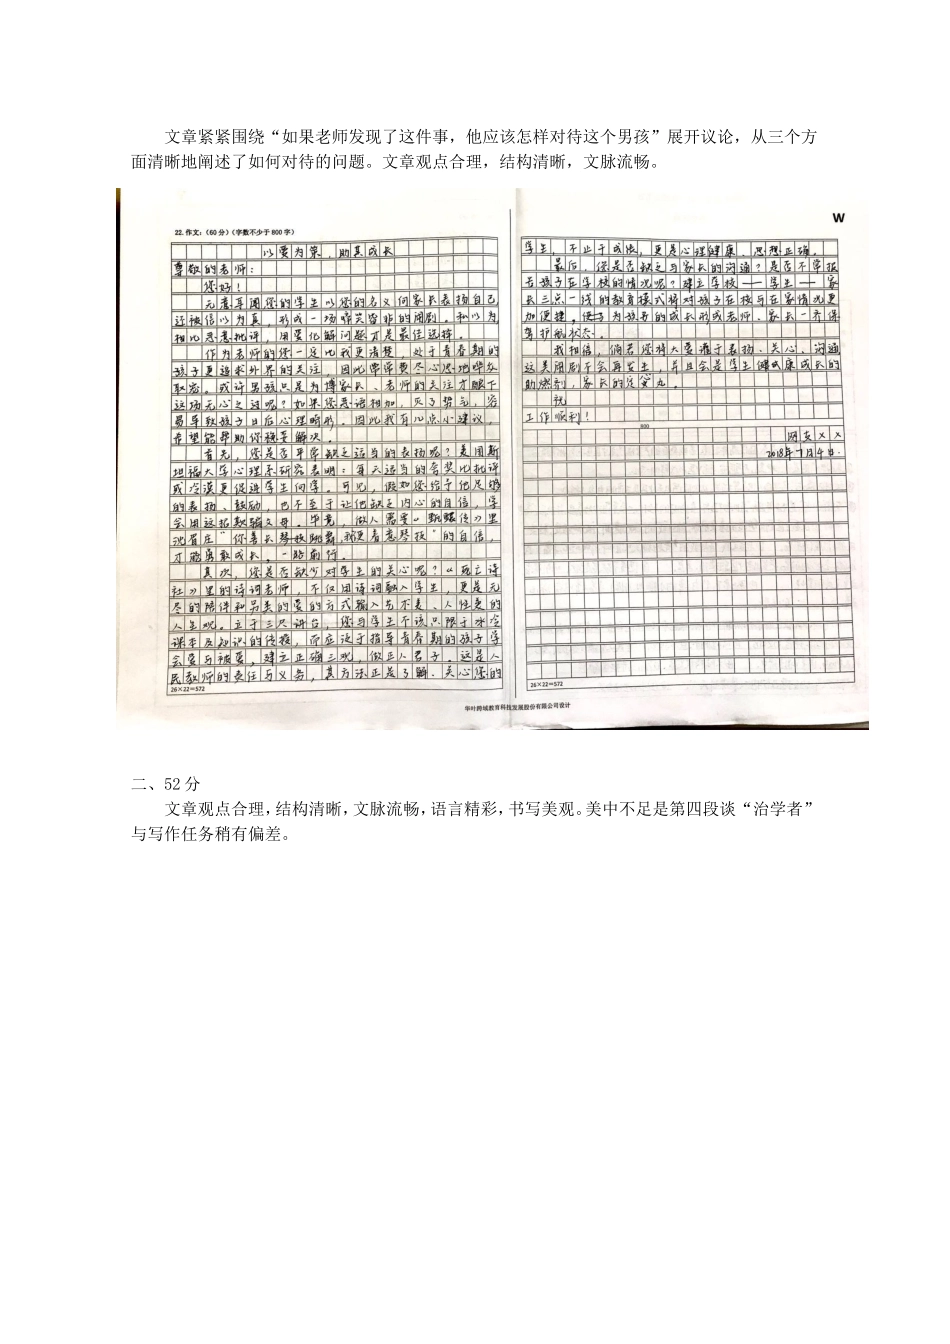 文章紧紧围绕“如果老师发现了这件事，他应该怎样对待这个男孩”展开议论，从三个方
面清晰地阐述了如何对待的问题。文章观点合理，结构清晰，文脉流畅。
W
22.作文：（60分）（字数不少于800字）
以爱为策，助其成长
尊敬的老师：
您好！
无意耳闻您的学生以您的名义向家长表扬自己
还被信以为真，形成一场啼笑皆非的闹剧。私以为
相比恶意批评，用爱化解问题才是最佳选择。
作为老师的您一定比我更清楚，处于青春期的
孩子更追求外界的关注，因此常常费尽心思地哗众
取宠。或许男孩只是为博家长、老师的关注才酿下
这场无心之过呢？如果您恶语相加，灭了势气，容
易导致孩子日后心理畸形。因此我有几点小建议，
希望能帮助你稳妥解决。
首先，您是否平常缺乏适当的表扬呢？美国斯
坦福大学心理系研究表明：每天适当的夸奖比批评
或冷漠更促进学生向学。可见，假如您给予他足够
的表扬、鼓励，也不至于让他缺乏内心的自信，学
会用这招欺骗父母。毕竟，做人需要《甄嬛传》里
沈眉庄“你善长琴技跳舞，我更看意琴技”的自信，
才能勇敢成长，一路前行。
其次，您是否缺少对学生的关心呢？《死亡诗
社》里的诗词老师，不仅用诗词融入学生，更是无
尽的陪伴和另类的爱的方式输入艺不美、人性更的
人生观。立于三尺讲台，您与学生不该只限于冰冷
课本及知识的传授，而应该于指导青春期的孩子学
会爱与被爱，建立正确三观，做正人君子。这是人
民教师的责任与义务，其方法正是了解、关心您的
26×22=572
学生，不止于成绩，更是心理健康、思想正确。
最后，您是否缺乏与家长的沟通？是否不常报
告孩子在学校的情况呢？建立学校——学生——家
长三点一线的教育模式将对孩子在校与在家情况更
加便捷。便于为孩子的成长形成老师、家长一齐保
驾护航状态。
我相信，倘若您将大爱灌于表扬、关心、沟通
这类闹剧不会再发生，并且会是学生健康成长的
助燃剂，家长的定心丸。
祝
工作顺利！
800
网友××
2018年7月4日.
26×22=572
华叶跨域教育科技发展股份有限公司设计
二、52分
文章观点合理，结构清晰，文脉流畅，语言精彩，书写美观。美中不足是第四段谈“治学者”
与写作任务稍有偏差。